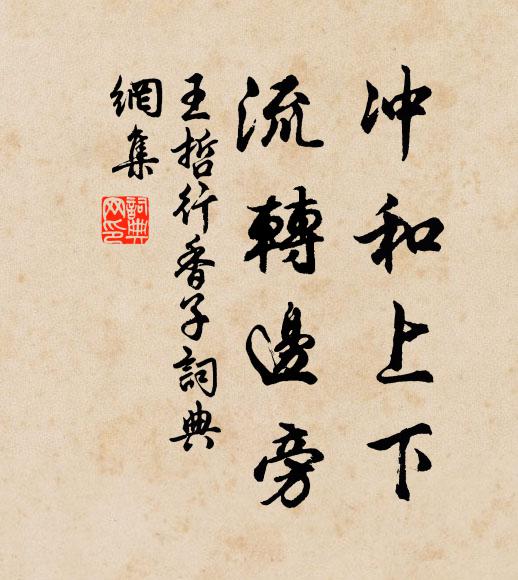 冲和上下
流轉邊旁
王哲行香子詞典
網集
詞典網印